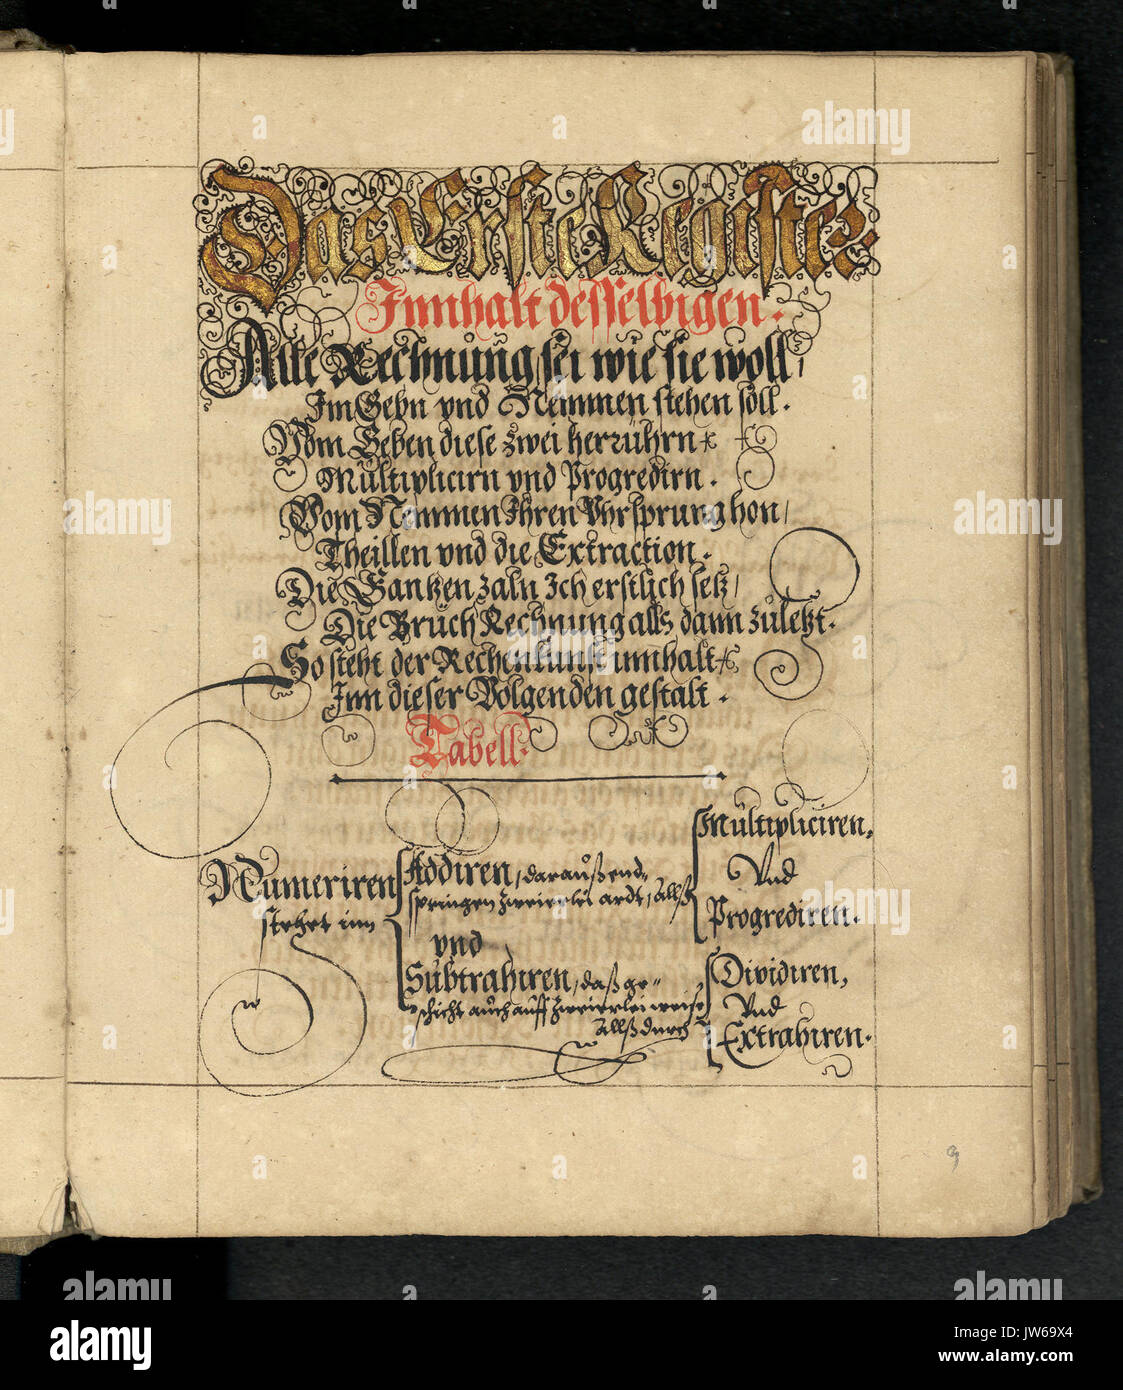 Das Erste Register.
Innhalt desselbigen.
Alle Rechnung sei wie sie woll,
Im Gebn vnd Nemmen stehen soll.
Vom Geben diese zwei herrührn
Multiplicirn vnd Progredirn.
Vom Nemmen Ihren Vhrsprung hon,
Theillen vnd die Extraction.
Die Gantzen zaln Ich erstlich setz,
Die Bruch Rechnung alls dann zuletzt.
So steht der Rechenkunst innhalt
Inn dieser Volgenden gestalt.
Tabell.
Numeriren
stehet inn
Addiren, darauß end-
springen zweierlei ardt, Allß
vnd
Subtrahiren, daß ge-
schicht auch auff zweierlei weise
Allß durch
Multipliciren,
Vnd
Progrediren.
Dividiren,
Vnd
Extrahiren.
9
alamy stock photo
JW69X4
www.alamy.com